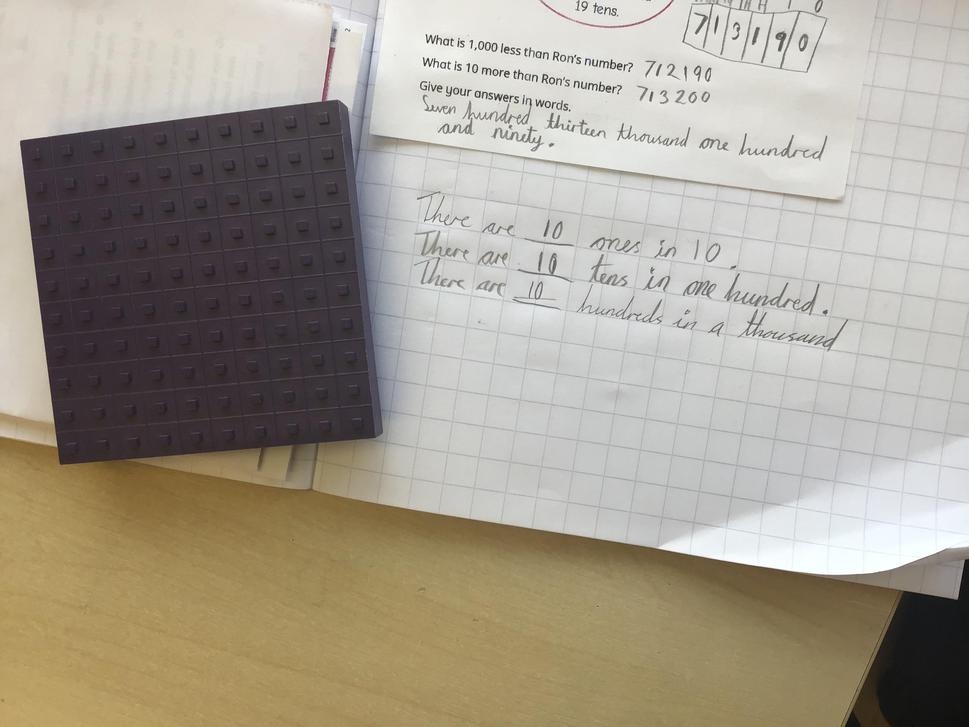 19 tens.
H T O
7 1 3 1 9 0
What is 1,000 less than Ron's number? 712190
What is 10 more than Ron's number? 713200
Give your answers in words.
Seven hundred thirteen thousand one hundred
and ninety.
There are 10 ones in 10.
There are 10 tens in one hundred.
There are 10 hundreds in a thousand